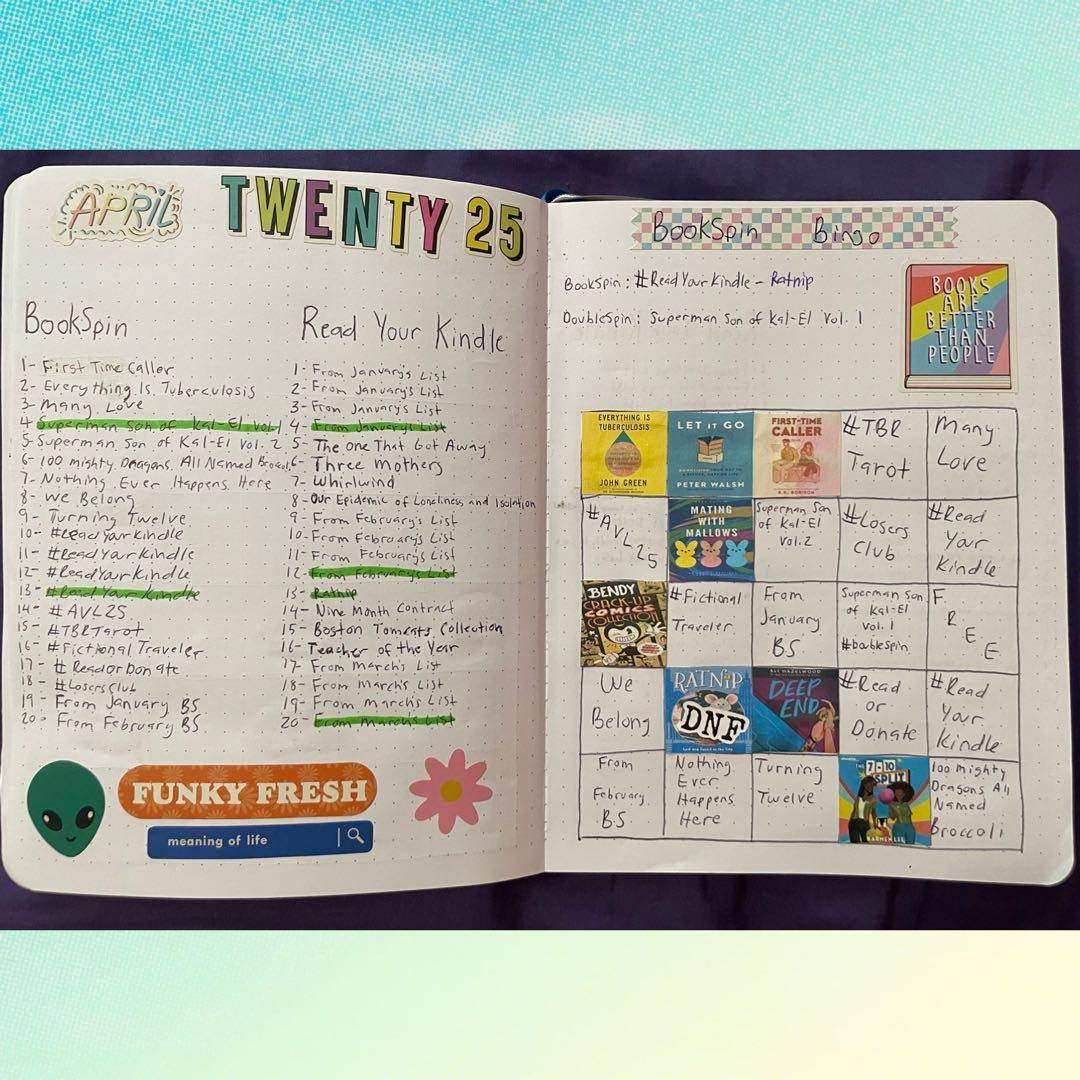 APRIL
TWENTY 25
BookSpin
1- First Time Caller
2- Everything Is Tuberculosis
3- Many Love
4- Superman Son of Kal-El Vol. 1
5- Superman Son of Kal-El Vol. 2
6- 100 Mighty Dragons All Named Broccoli
7- Nothing Ever Happens Here
8- We Belong
9- Turning Twelve
10- #ReadYourKindle
11- #ReadYourKindle
12- #ReadYourKindle
13- #ReadYourKindle
14- #AVL25
15- #TBRTarot
16- #Fictional Traveler
17- #ReadOrDonate
18- #LosersClub
19- From January BS
20- From February BS
Read Your Kindle
1- From January's List
2- From January's List
3- From January's List
4- From January's List
5- The One That Got Away
6- Three Mothers
7- Whirlwind
8- Our Epidemic of Loneliness and Isolation
9- From February's List
10- From February's List
11- From February's List
12- From February's List
13- Ratnip
14- Nine Month Contract
15- Boston Tomcats Collection
16- Teacher of the Year
17- From March's List
18- From March's List
19- From March's List
20- From March's List
FUNKY FRESH
meaning of life
BookSpin Bingo
BookSpin: #ReadYourKindle - Ratnip
DoubleSpin: Superman Son of Kal-El Vol. 1
BOOKS
ARE
BETTER
THAN
PEOPLE
EVERYTHING IS
TUBERCULOSIS
JOHN GREEN
LET IT GO
PETER WALSH
FIRST-TIME
CALLER
B.K. BORISON
#TBR
Tarot
Many
Love
#AVL25
MATING
WITH
MALLOWS
Superman Son
of Kal-El
Vol. 2
#Losers
Club
#Read
Your
Kindle
BENDY
CRACK-UP
COMICS
COLLECTION
#Fictional
Traveler
From
January
BS
Superman Son
of Kal-El
Vol. 1
#DoubleSpin
FREE
We
Belong
RATNIP
DNF
ALI HAZELWOOD
DEEP
END
#Read
or
Donate
#Read
Your
Kindle
From
February
BS
Nothing
Ever
Happens
Here
Turning
Twelve
THE 7-10
SPLIT
KARMEN LEE
100 Mighty
Dragons All
Named
Broccoli